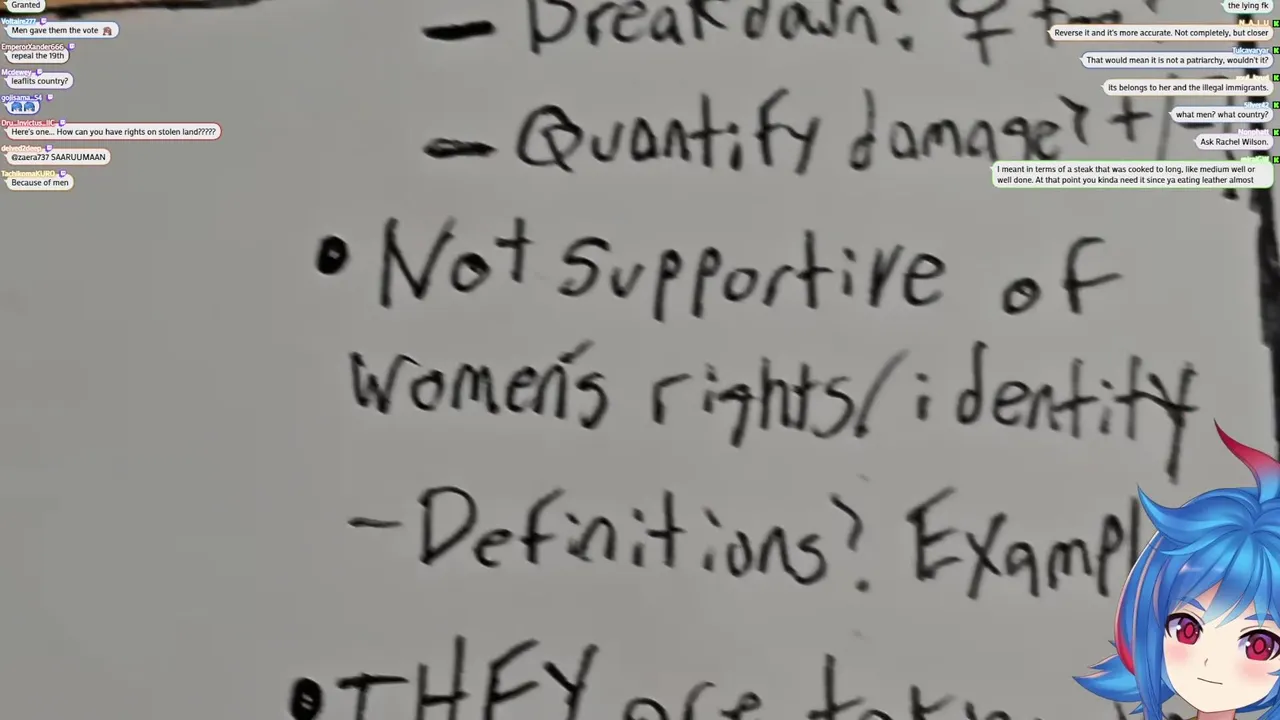 Granted
Voltaire277
Men gave them the vote
EmperorXander666
repeal the 19th
Mcdewey
leaflits country?
gojisama_54
Dru_Invictus_IIC
Here's one... How can you have rights on stolen land?????
delved2deep
@zaera737 SAARUUMAAN
TachikomaKURO
Because of men
- Breakdown?
- Quantify damage? +/-
• Not supportive of
women's rights/identity
- Definitions? Exampl
• THEY are
the lying fk
N_A_L_U
Reverse it and it's more accurate. Not completely, but closer
Tulcavaryar
That would mean it is not a patriarchy, wouldn't it?
its belongs to her and the illegal immigrants.
what men? what country?
Nonphatt
Ask Rachel Wilson.
I meant in terms of a steak that was cooked to long, like medium well or
well done. At that point you kinda need it since ya eating leather almost